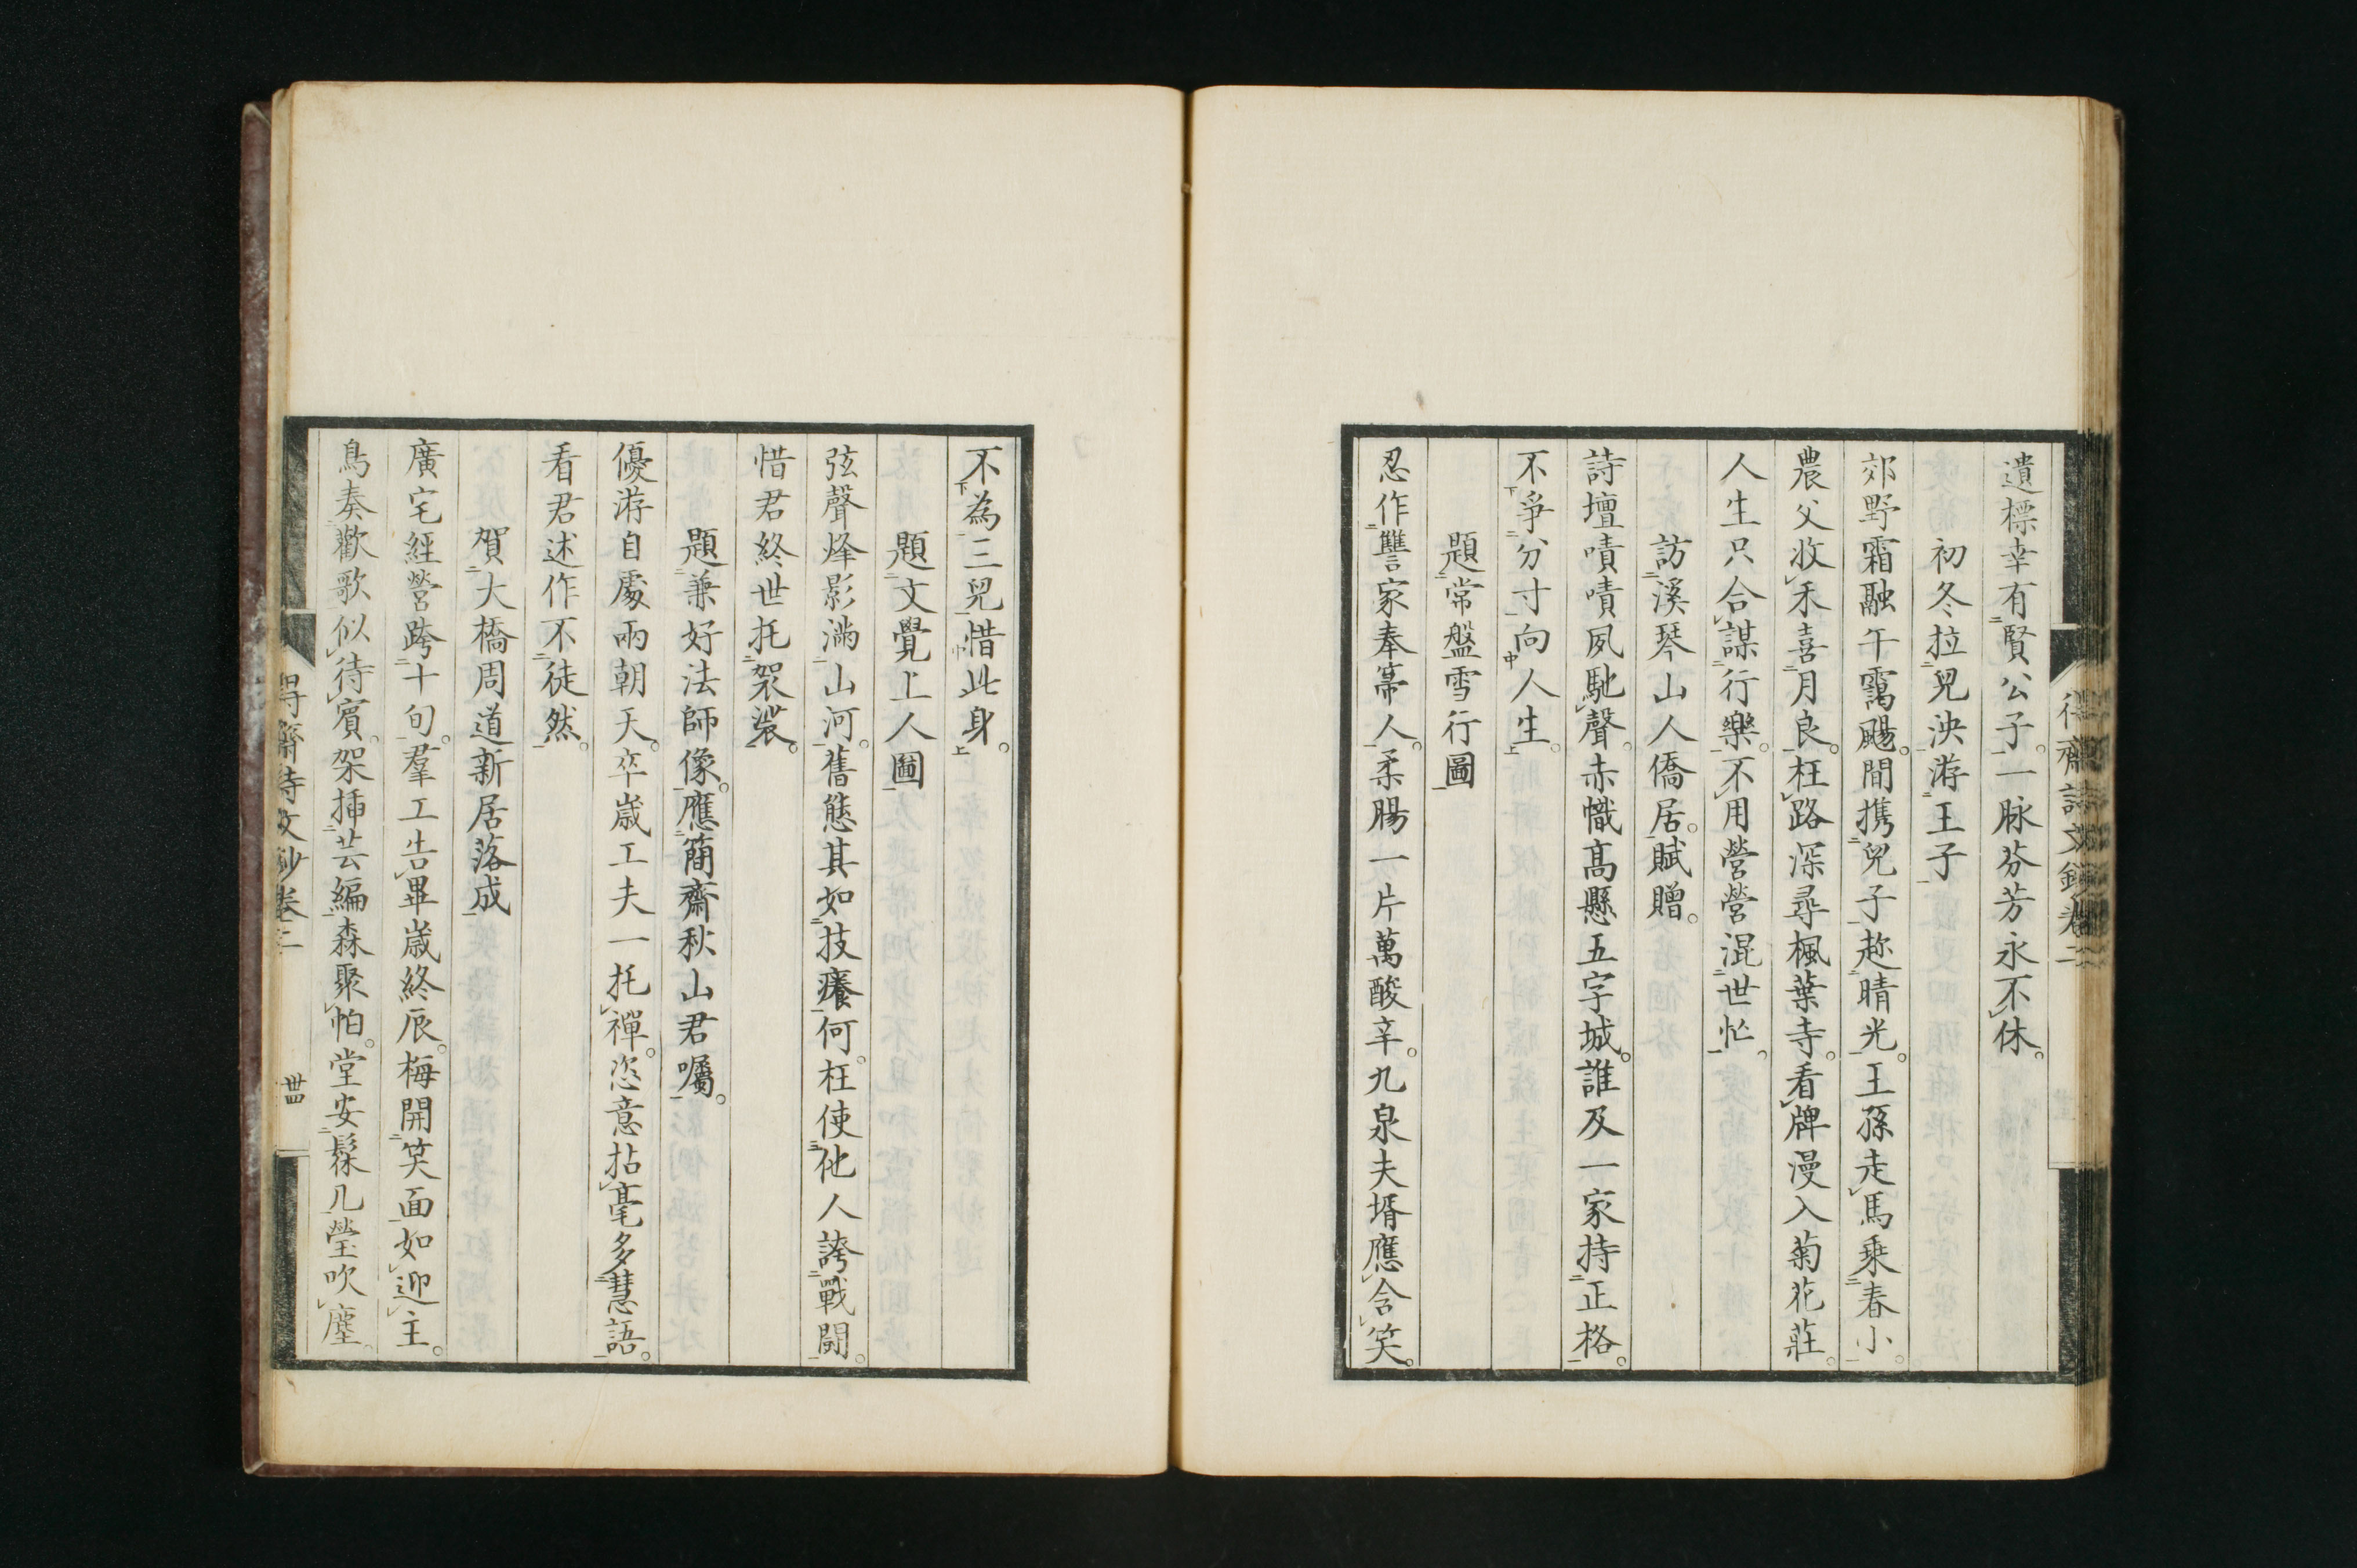 遺標幸有賢公子一脉芬芳永不休
初冬拉兒泱游王子
郊野霜融午靄颺間携兒子趂晴光王孫走馬乗春小
農父收禾喜月良枉路深尋楓葉寺看牌漫入菊花莊
人生只合謀行樂不用營營混世忙
訪溪琴山人僑居賦贈
詩壇嘖嘖夙馳聲赤幟髙懸五字城誰及一家持正格
不爭分寸向人生
題常盤雪行圖
忍作讐家奉箒人柔腸一片萬酸辛九泉夫壻應含笑
不為三兒惜此身
題文覺上人圖
弦聲烽影滿山河舊態其如技癢何枉使他人誇戰鬪
惜君終世托袈裟
題兼好法師像應簡齋秋山君囑
優游自處兩朝天卒歳工夫一托禪恣意拈毫多慧語
看君述作不徒然
賀大橋周道新居落成
廣宅經營跨十旬羣工告畢歳終辰梅開笑面如迎主
鳥奏歡歌似待賓架挿芸編森聚帕堂安髹几瑩吹塵
齋詩文鈔卷二
卅四